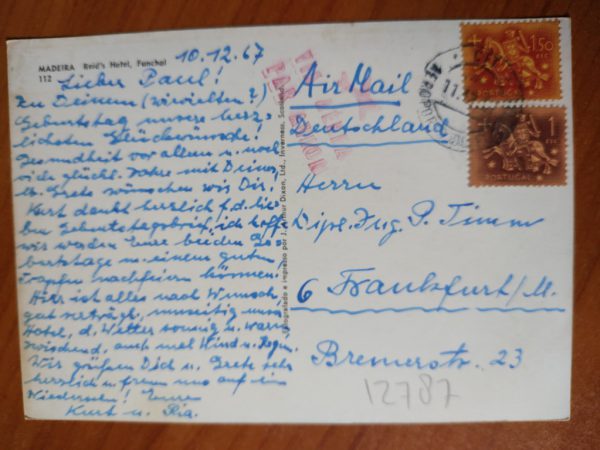 MADEIRA Reid's Hotel, Funchal
112
10.12.67
Lieber Paul!
Zu Deinem (wievielten?)
Geburtstag unsere herz-
lichsten Glückwünsche!
Gesundheit vor allem u. noch
glückl. Jahre mit Deiner
lb. Grete wünschen wir Dir!
Kurt dankt herzlich f. d. lie-
ben Geburtstagsbrief, ich hoffe
wir werden Eure beiden Ge-
burtstage m. einem guten
Tropfen nachfeiern können!
Hier ist alles nach Wunsch,
gut unser
Hotel, d. Wetter sonnig u. warm
zwischend. auch mal Wind u. Regen.
Wir grüßen Dich u. Grete sehr
herzlich u. freuen uns auf ein
Wiedersehen! Eure
Kurt u. Ria.
Fotografado e impresso por J. Arthur Dixon, Ltd., Inverness,
Air Mail
Deutschland
Herrn
Dipl. Ing. P. Timm
6 Frankfurt/M.
Bremerstr. 23
12787
1$50
ESC
PORTUGAL
1
ESC
PORTUGAL